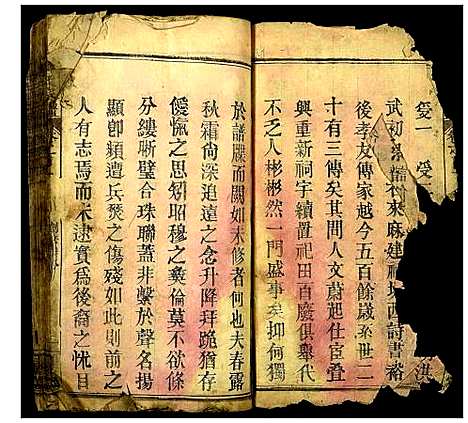 受一 受二 洪
武初 來麻建祠 西詩書裕
後孝友傳家越今五百餘歲矣世二
十有三傳矣其間人文蔚起仕宦疊
興重新祠宇續置祀田百廢俱舉代
不乏人彬彬然一門盛事矣抑何獨
於譜牒而闕如未修者何也夫春露
秋霜尚深追遠之念升降拜跪猶存
僾愾之思矧昭穆之彝倫莫不欲條
分縷晰璧合珠聯蓋非繫於聲名揚
顯卽頻遭兵燹之傷殘如此則前之
人有志焉而未逮實爲後裔之怳目